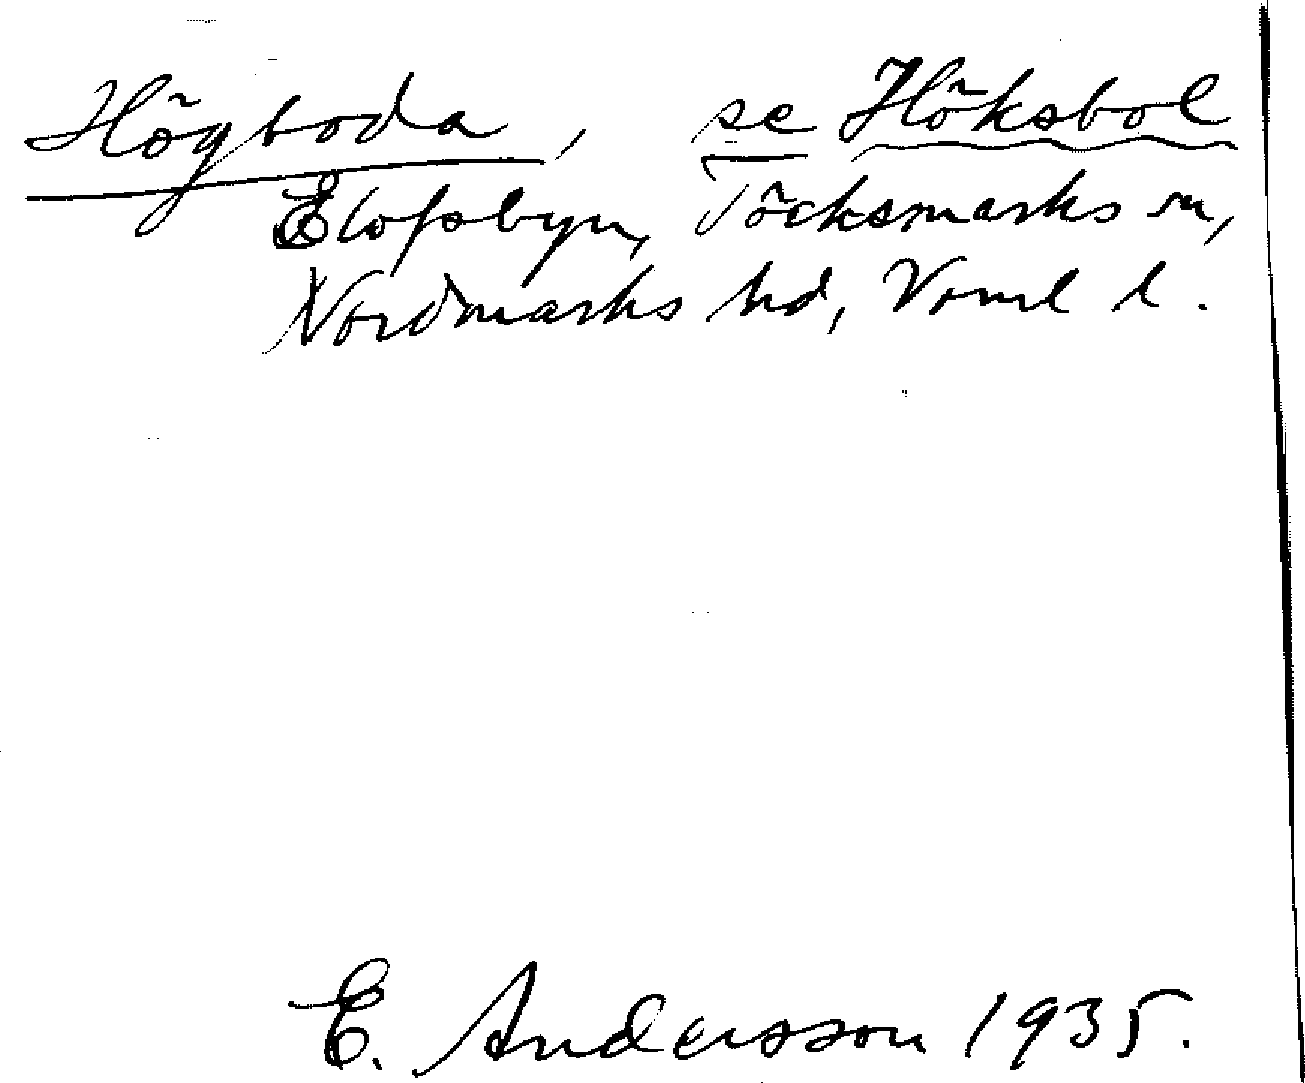 Högboda, se Höksbol
Elofsbyn, Töcksmarks sn,
Nordmarks hd, Vrml l.
E. Andersson 1935.